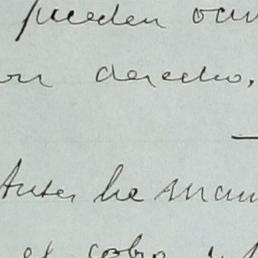 pueden ocu
con derecho.
Antes he man
el cobro y